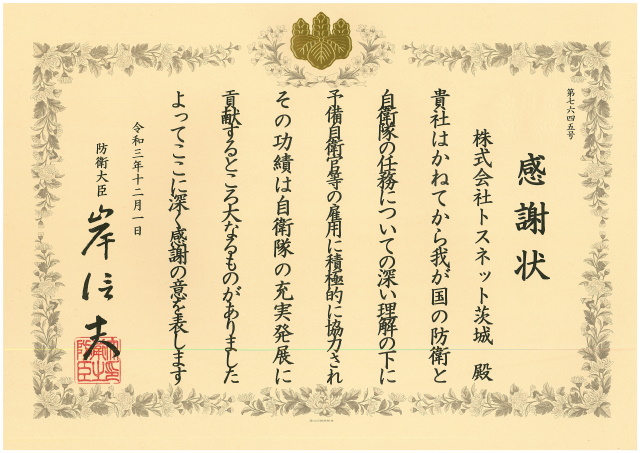 第七六四五号
感謝状
株式会社トスネット茨城 殿
貴社はかねてから我が国の防衛と
自衛隊の任務についての深い理解の下に
予備自衛官等の雇用に積極的に協力され
その功績は自衛隊の充実発展に
貢献するところ大なるものがありました
よってここに深く感謝の意を表します
令和三年十二月一日
防衛大臣 岸信夫